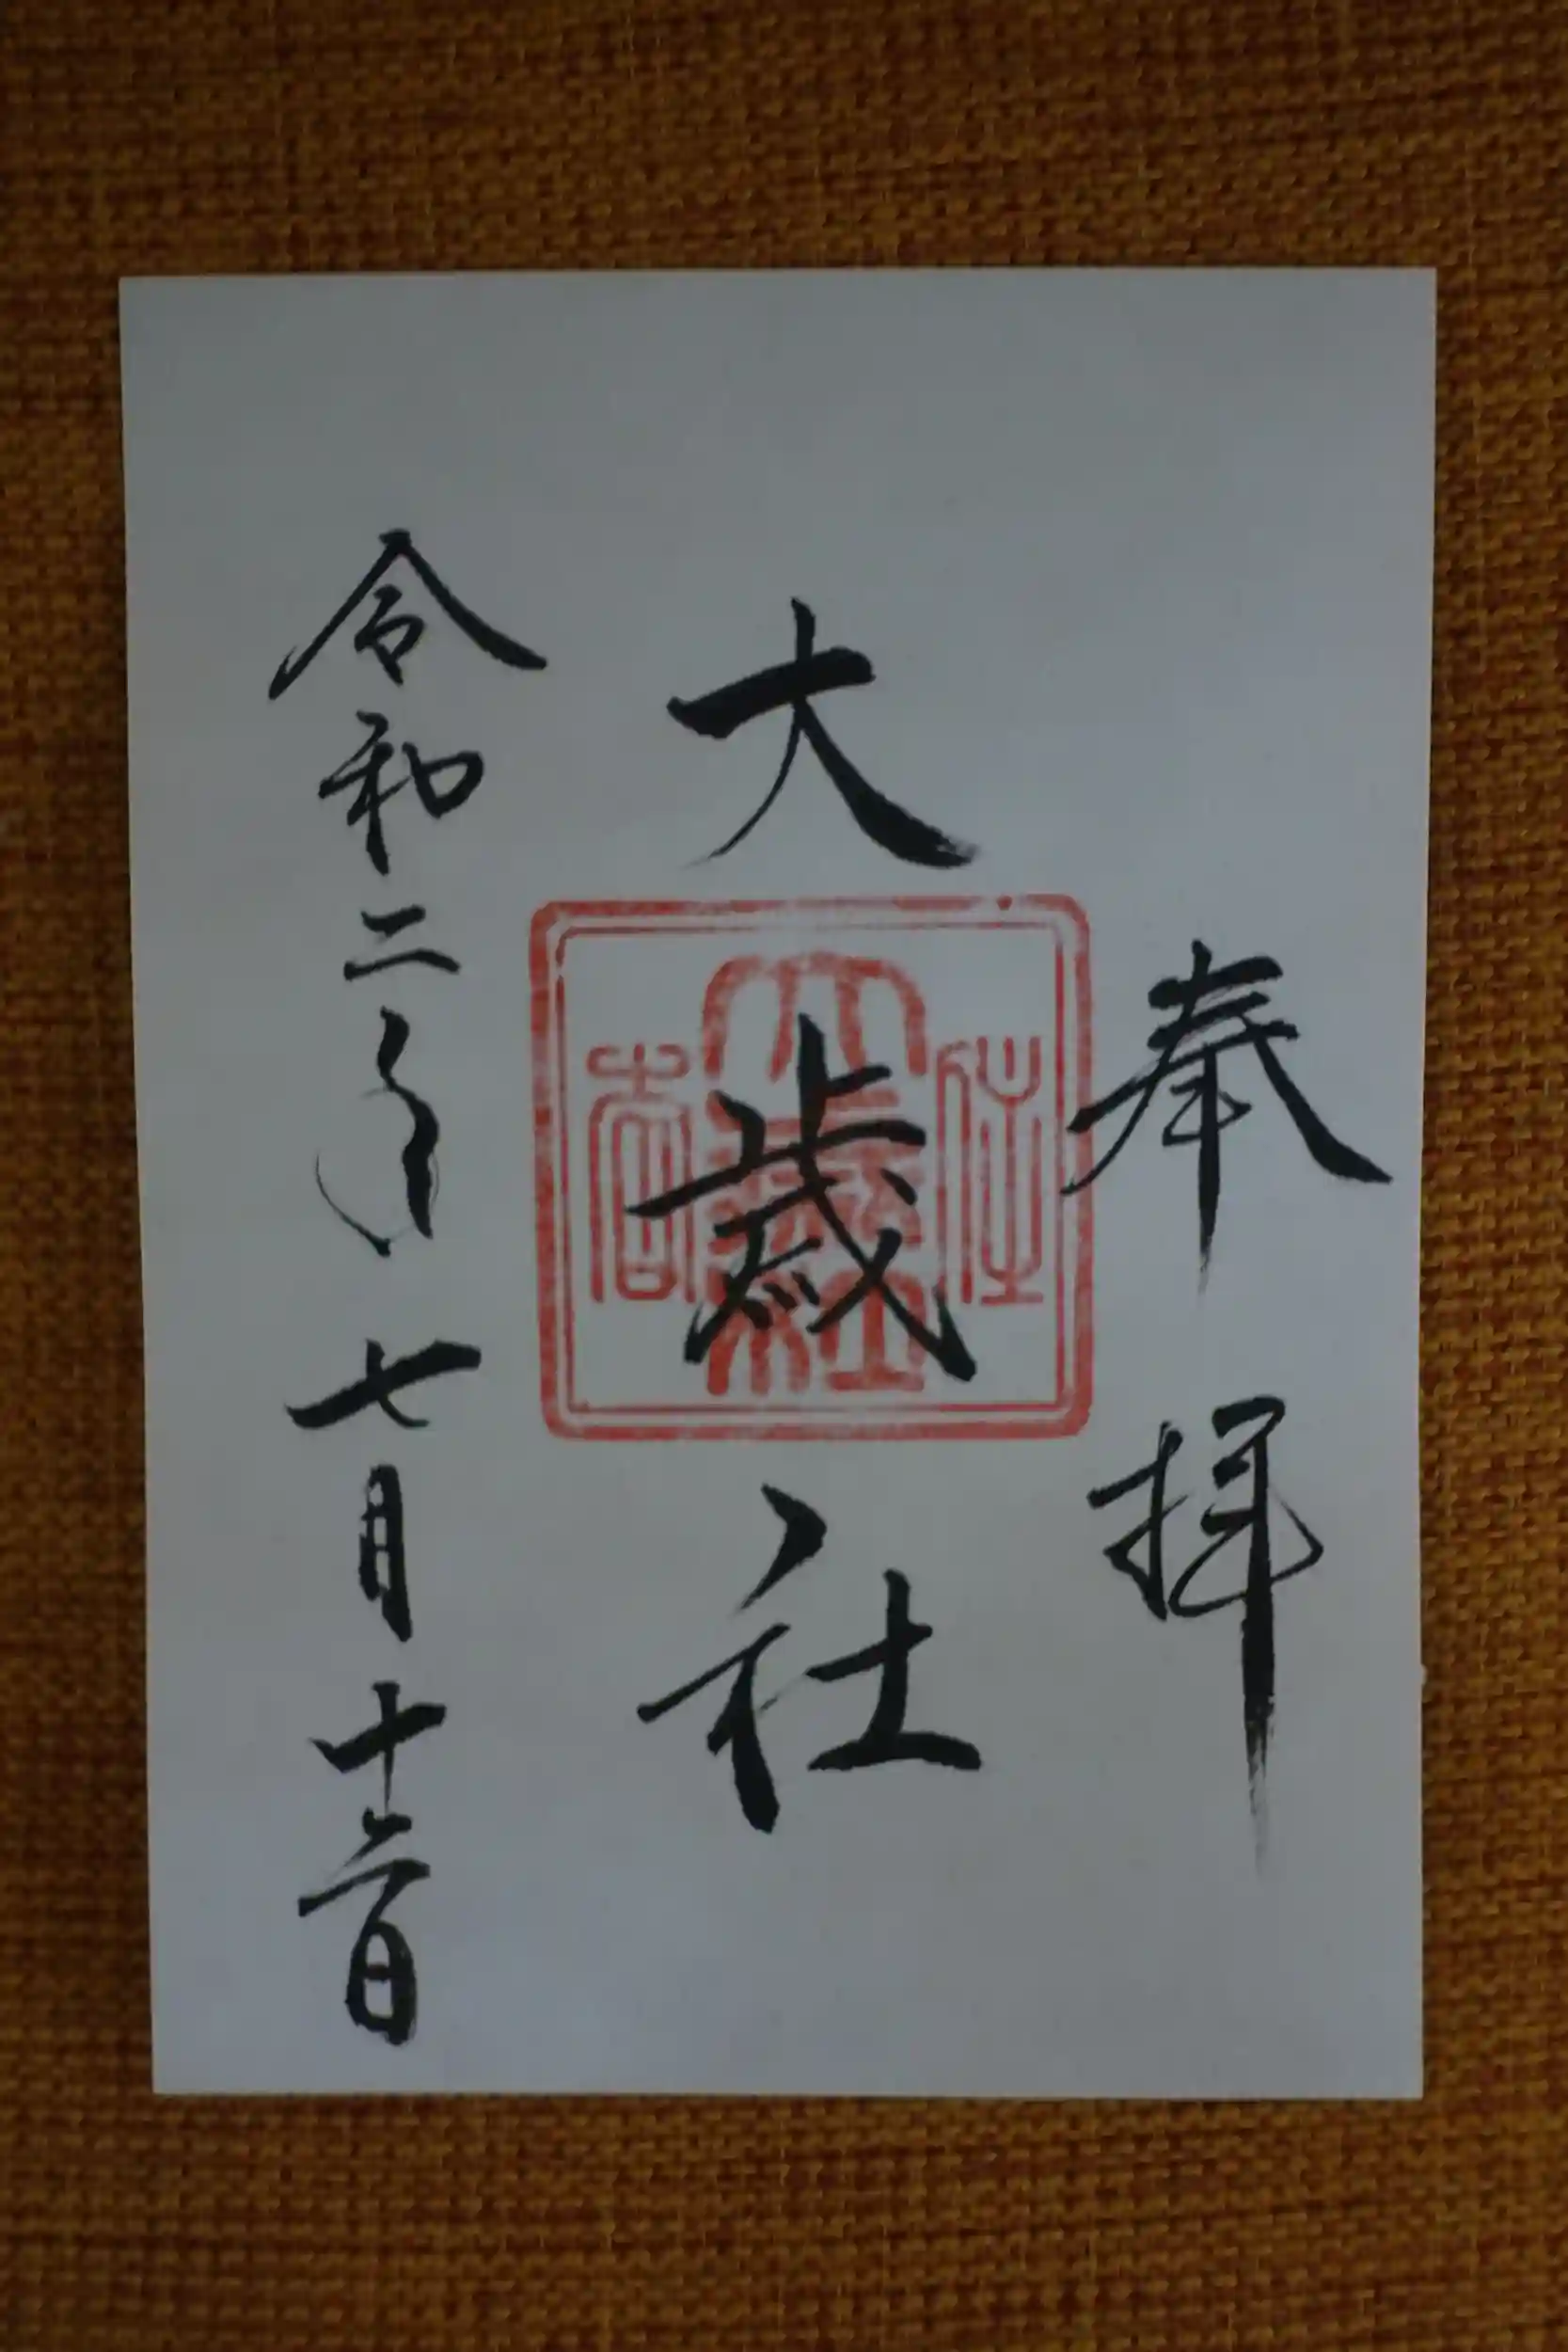 奉拝
大歳社
令和二年七月十二日
住
大歳社
吉